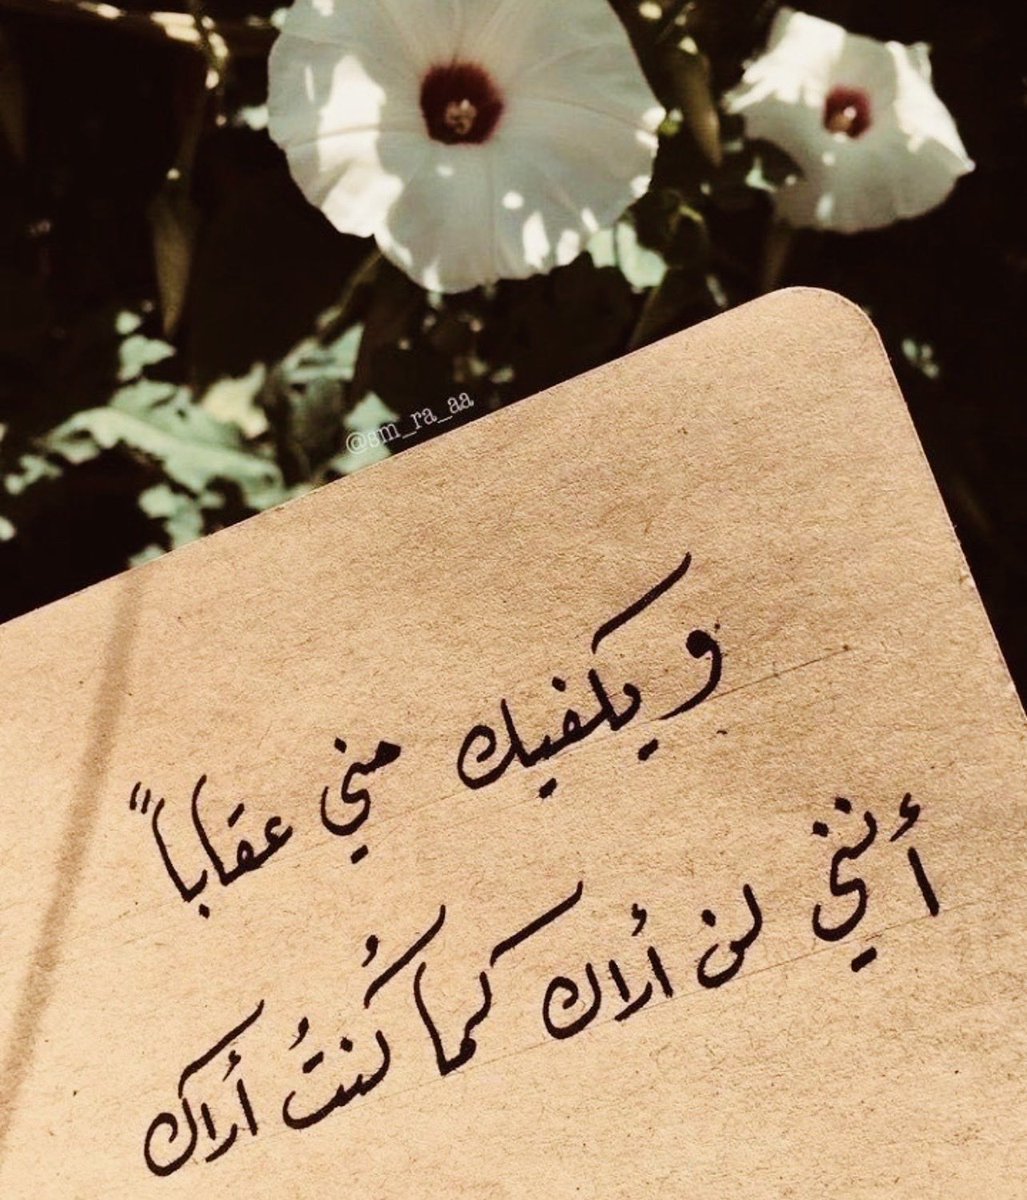 @sm_ra_aa
و يكفيك مني عقاباً
أنني لن أراك كما كُنتُ أراك